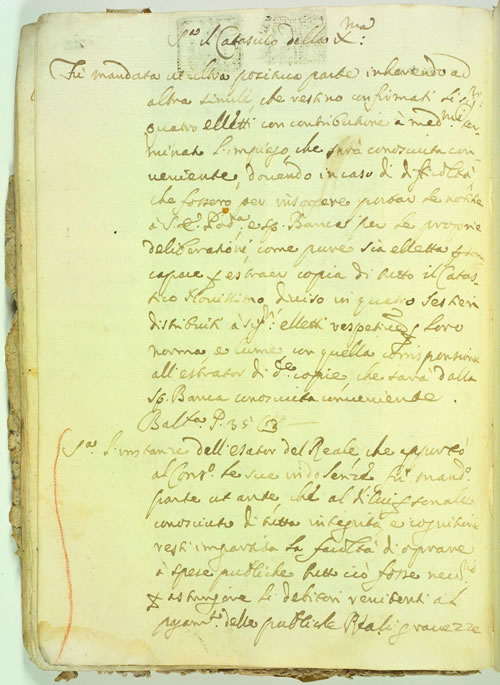 S.ra il Catastico della X.ma:
Fù mandata un altra positiva parte inherendo ad
altra simill, che restino confirmati li sig.ri
quatro elletti con contributione à med.mi ter-
minat l'impiego, che sarà conosciuta con
veniente, dovendo in caso di difficoltà
che fossero per insorgere portar le notitie
à S. E. Pod.à e sp. Banca per le proprie
deliberationi, come pure sia elletta
capace estraer copia di tutto il Catas-
tico Novissimo diviso in quatro Sestieri
distribuiti à sig.ri elletti respetive loro
norma e lume con quella corrisponsione
all'estrator di d.e copie che sarà dalla
Sp. Banca conosciuta conveniente.
Balt.a P. 35 C 3
S.ra l'instanze dell'esator del Reale, che
al Cons.o le sue indolenze fù mand.a
parte ut ante che al d.
conosciuto di tutta integrità e cognitione
resti impartita la facoltà di oprare
à spese publiche tutto ciò fosse nec.rio
astringere li debitori renitenti al
pagam.to delle publiche Reali gravezze